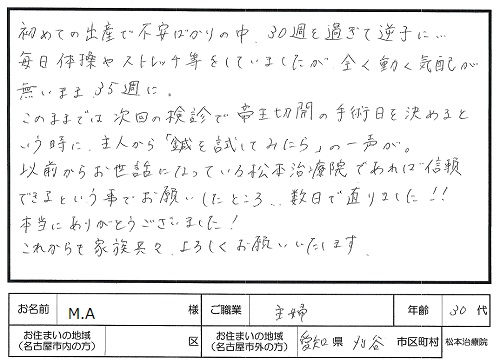 初めての出産で不安ばかりの中、30週を過ぎて逆子に…
毎日体操やストレッチ等をしていましたが全く動く気配が
無いまま35週に。
このままでは次回の検診で帝王切開の手術日を決めると
いう時に、主人から「鍼を試してみたら」の一声が。
以前からお世話になっている松本治療院であれば信頼
できるという事でお願いしたところ、数日で直りました!!
本当にありがとうございました!
これからも家族共々、よろしくお願いいたします。
お名前 M.A 様 ご職業 主婦 年齢 30代
お住まいの地域(名古屋市内の方) 区 お住まいの地域(名古屋市外の方) 愛知県 刈谷 市区町村 松本治療院